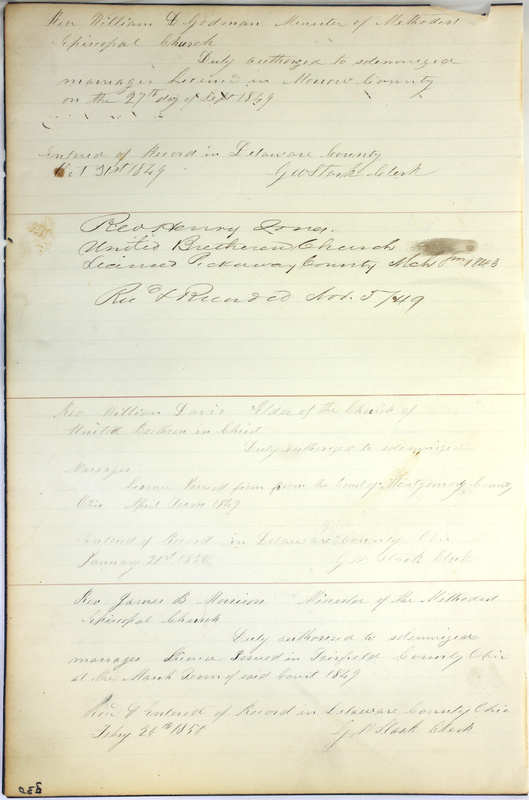 Rev William D Godman Minister of Methodist
Episcopal Church
Duly authorised to solemnized
marrages Licened in Morrow County
on the 27th day of Sept 1849
Entered of Record in Delaware County
Oct 31st 1849 G W Stark Clerk
Rev Henry Jones.
United Bretheren Church
Licened Pickaway County Mch 1843
Rec'd & Recorded Nov. 5/49
Rev William Davis Elder of the Church of
United Brethren in Christ
Duly authorized to solemnized
Marrages
License Issued from from the Court of Montgomery County
Ohio April Term 1849
Entered of Record in Delaware County Ohio
January 21st 1850 G W Stark Clerk
Rev James B Morrison Minister of the Methodist
Episcopal Church
Duly authorised to solemnize
marrages License Issued in Fairfield County Ohio
at the March Term of said Court 1849
Rec'd & Entered of Record in Delaware County Ohio
Feby 26th 1850 G W Stark Clerk